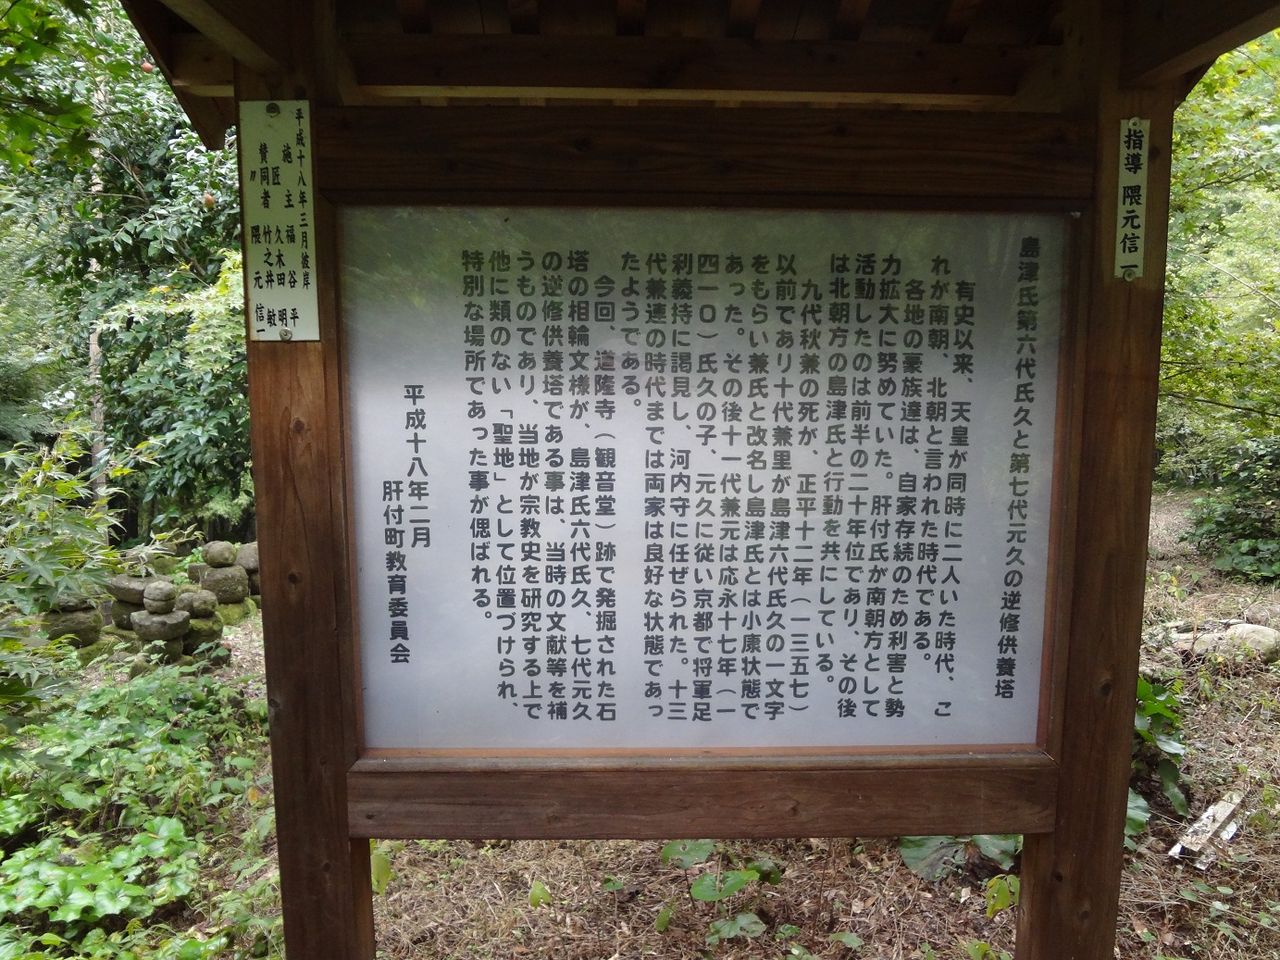 島津氏第六代氏久と第七代元久の逆修供養塔
有史以来、天皇が同時に二人いた時代、こ
れが南朝、北朝と言われた時代である。
各地の豪族達は、自家存続のため利害と勢
力拡大に努めていた。肝付氏が南朝方として
活動したのは前半の二十年位であり、その後
は北朝方の島津氏と行動を共にしている。
九代秋兼の死が、正平十二年(一三五七)
以前であり十代兼里が島津六代氏久の一文字
をもらい兼氏と改名し島津氏とは小康状態で
あった。その後十一代兼元は応永十七年(一
四一〇)氏久の子、元久に従い京都で将軍足
利義持に謁見し、河内守に任ぜられた。十三
代兼連の時代までは両家は良好な状態であっ
たようである。
今回、道隆寺(観音堂)跡で発掘された石
塔の相輪文様が、島津氏六代氏久、七代元久
の逆修供養塔である事は、当時の文献等を補
うものであり、当地が宗教史を研究する上で
他に類のない「聖地」として位置づけられ、
特別な場所であった事が偲ばれる。
平成十八年二月
肝付町教育委員会
指導 隈元信一
平成十八年三月彼岸
施主 福谷 平
匠 久木田 明
賛同者 竹之井 敏
〃 隈元 信一